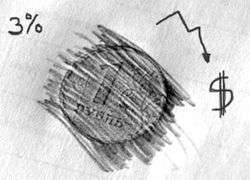 3%
$
1
РУБЛЬ